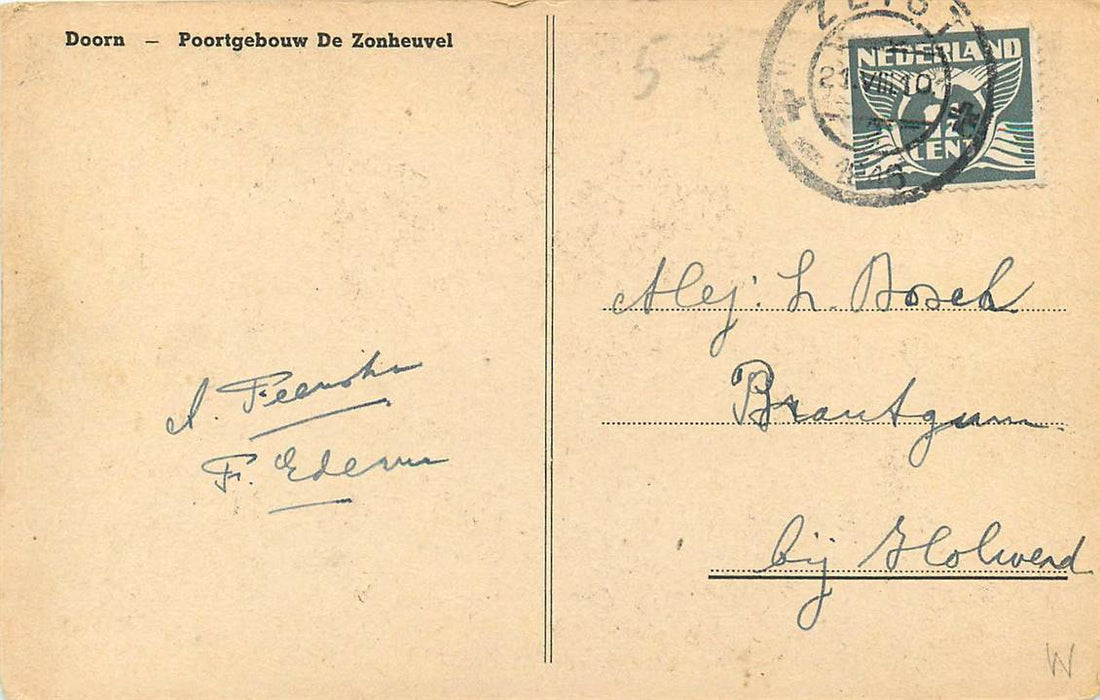 Doorn — Poortgebouw De Zonheuvel
5
ZEIST
21.VIII.10
1946
NEDERLAND
CENT
A.
F.
H. Bosch
Brantgum
bij Holwerd
W